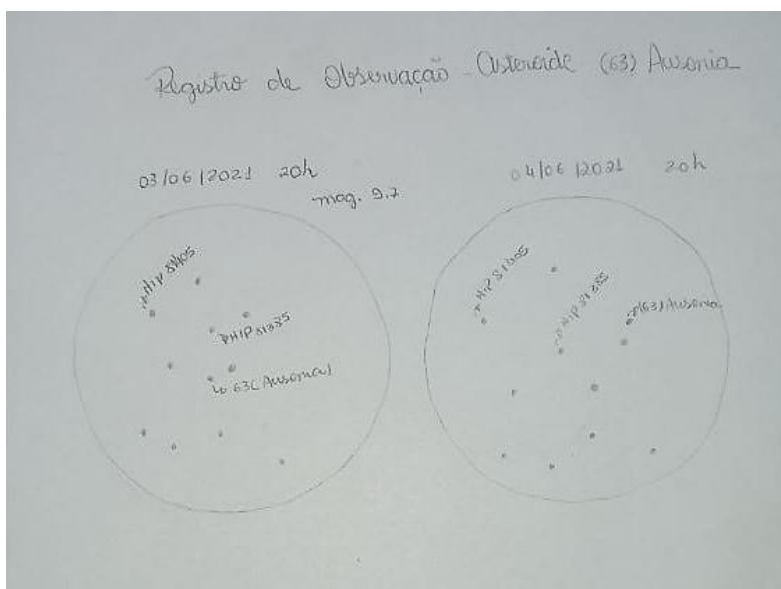 Registro de Observação - Asteroide (63) Ausonia
03/06/2021 20h
mag. 9.7
HIP 81405
HIP 81335
63( Ausonia)
04/06/2021 20h
HIP 81305
HIP 81335
(63) Ausonia